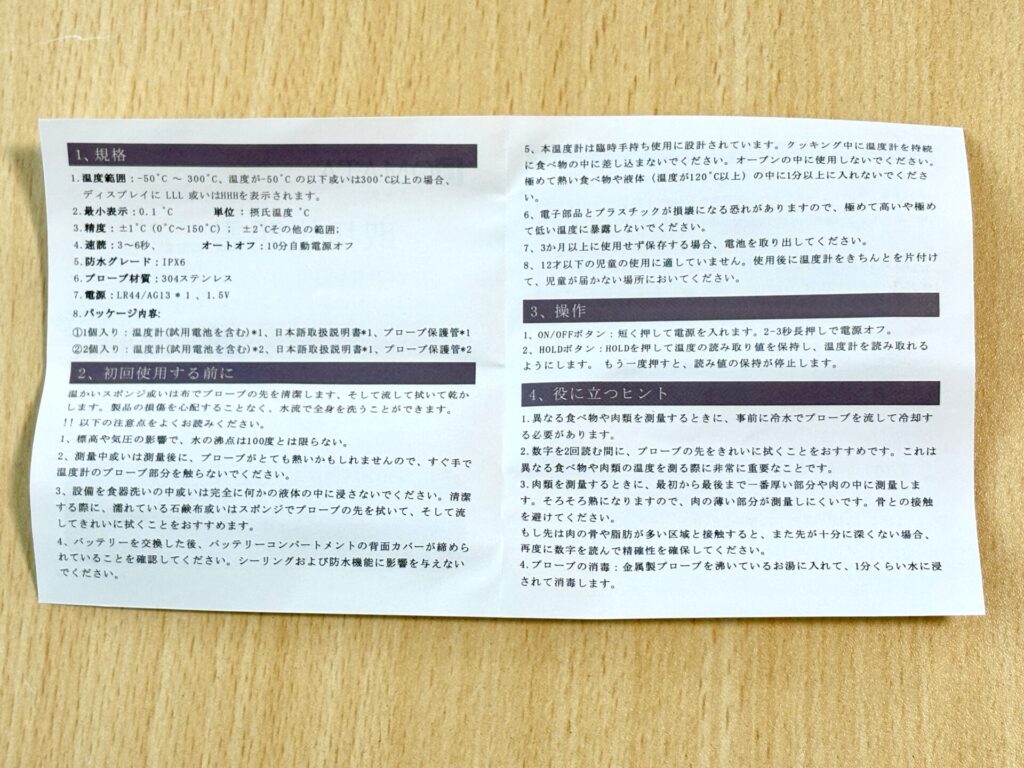 1、規格
1.温度範囲：-50˚C ～ 300˚C、温度が-50˚C の以下或いは300˚C以上の場合、
ディスプレイに LLL 或いはHHHを表示されます。
2.最小表示：0.1 ˚C 単位：摂氏温度 ˚C
3.精度：±1˚C (0˚C～150˚C) ； ±2˚Cその他の範囲;
4.速読：3～6秒、 オートオフ：10分自動電源オフ
5.防水グレード：IPX6
6.プローブ材質：304ステンレス
7.電源：LR44/AG13＊1 、1.5V
8.パッケージ内容:
①1個入り：温度計(試用電池を含む)*1、日本語取扱説明書*1、プローブ保護管*1
②2個入り：温度計(試用電池を含む)*2、日本語取扱説明書*1、プローブ保護管*2
2、初回使用する前に
温かいスポンジ或いは布でプローブの先を清潔します、そして流して拭いて乾か
します。製品の損傷を心配することなく、水流で全身を洗うことができます。
!! 以下の注意点をよくお読みください。
1、標高や気圧の影響で、水の沸点は100度とは限らない。
2、測量中或いは測量後に、プローブがとても熱いかもしれませんので、すぐ手で
温度計のプローブ部分を触らないでください。
3、設備を食器洗いの中或いは完全に何かの液体の中に浸さないでください。清潔
する際に、濡れている石鹸布或いはスポンジでプローブの先を拭いて、そして流
してきれいに拭くことをおすすめます。
4、バッテリーを交換した後、バッテリーコンパートメントの背面カバーが締めら
れていることを確認してください。シーリングおよび防水機能に影響を与えない
でください。
5、本温度計は臨時手持ち使用に設計されています。クッキング中に温度計を持続
に食べ物の中に差し込まないでください。オーブンの中に使用しないでください。
極めて熱い食べ物や液体（温度が120˚C以上）の中に1分以上に入れないでくださ
い。
6、電子部品とプラスチックが損壊になる恐れがありますので、極めて高いや極め
て低い温度に暴露しないでください。
7、3か月以上に使用せず保存する場合、電池を取り出してください。
8、12才以下の児童の使用に適していません。使用後に温度計をきちんとを片付け
て、児童が届かない場所においてください。
3、操作
1、ON/OFFボタン：短く押して電源を入れます。2-3秒長押しで電源オフ。
2、HOLDボタン：HOLDを押して温度の読み取り値を保持し、温度計を読み取れる
ようにします。 もう一度押すと、読み値の保持が停止します。
4、役に立つヒント
1.異なる食べ物や肉類を測量するときに、事前に冷水でプローブを流して冷却す
る必要があります。
2.数字を2回読む間に、プローブの先をきれいに拭くことをおすすめです。これは
異なる食べ物や肉類の温度を測る際に非常に重要なことです。
3.肉類を測量するときに、最初から最後まで一番厚い部分や肉の中に測量しま
す。そろそろ熟になりますので、肉の薄い部分が測量しにくいです。骨との接触
を避けてください。
もし先は肉の骨や脂肪が多い区域と接触すると、また先が十分に深くない場合、
再度に数字を読んで精確性を確保してください。
4.プローブの消毒：金属製プローブを沸いているお湯に入れて、1分くらい水に浸
されて消毒します。